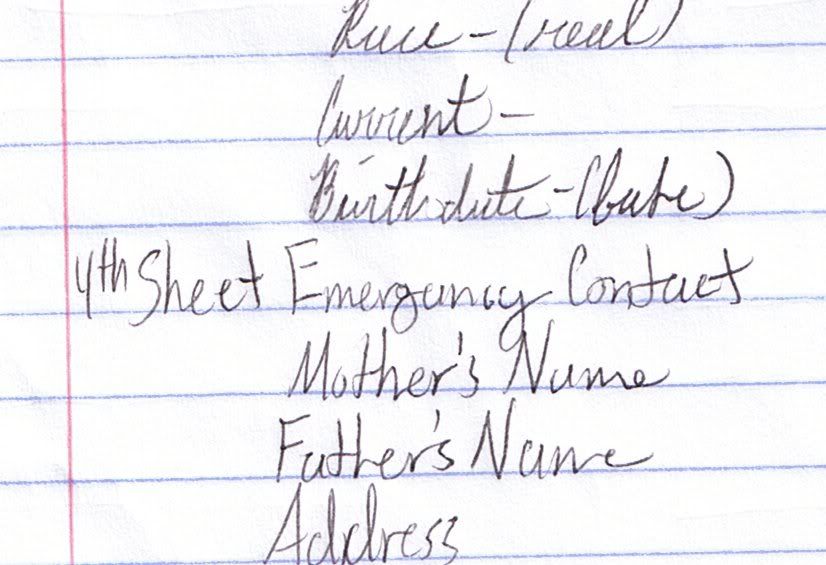 Race - (real)
Current -
Birthdate - (babe)
4th Sheet Emergancy Contact
Mother's Name
Father's Name
Address